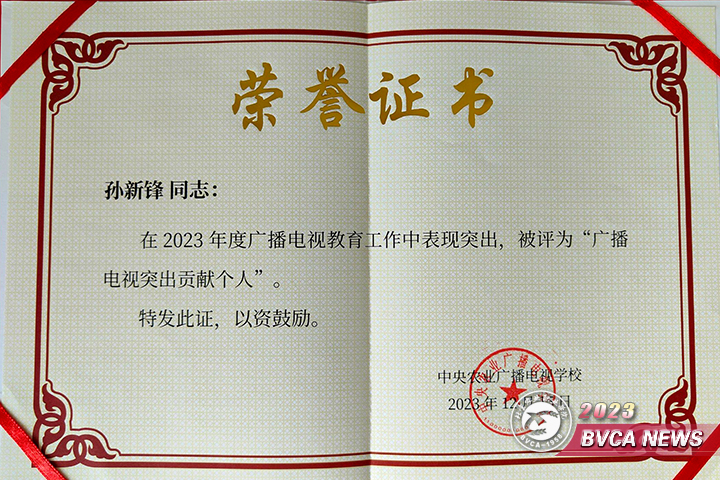 荣誉证书
孙新锋 同志：
在 2023 年度广播电视教育工作中表现突出，被评为“广播
电视突出贡献个人”。
特发此证，以资鼓励。
中央农业广播电视学校
2023 年 12 月
2023
BVCA NEWS
BVCA-1958